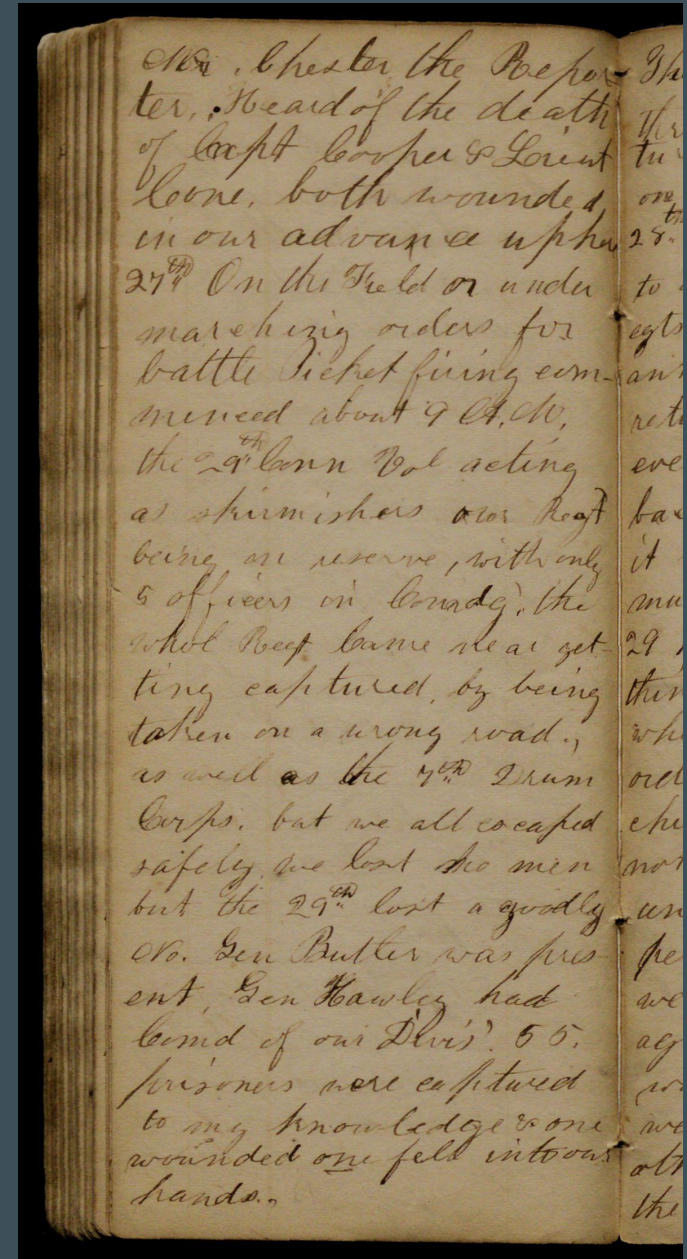 Mr. Chester the Repor-
ter. Heard of the death
of Capt Cooper & Lieut
Cone. both wounded
in our advance up here
27th On the Field or under
marching orders for
battle Picket firing com-
menced about 9 A.M.
the 29th Conn Vol acting
as skirmishers our Regt
being in reserve, with only
5 officers in Comdg. the
whol Regt Came near get-
ting captured, by being
taken on a wrong road.,
as well as the 7th Drum
Corps. but we all escaped
safely, we lost no men
but the 29th lost a goodly
No. Gen Butler was pres-
ent, Gen Hawley had
Comd of our Divis. 55.
prisoners were captured
to my knowledge & one
wounded one fell into our
hands.
tu
one
28th
to
ant
eve
it
29
not
we
we
the